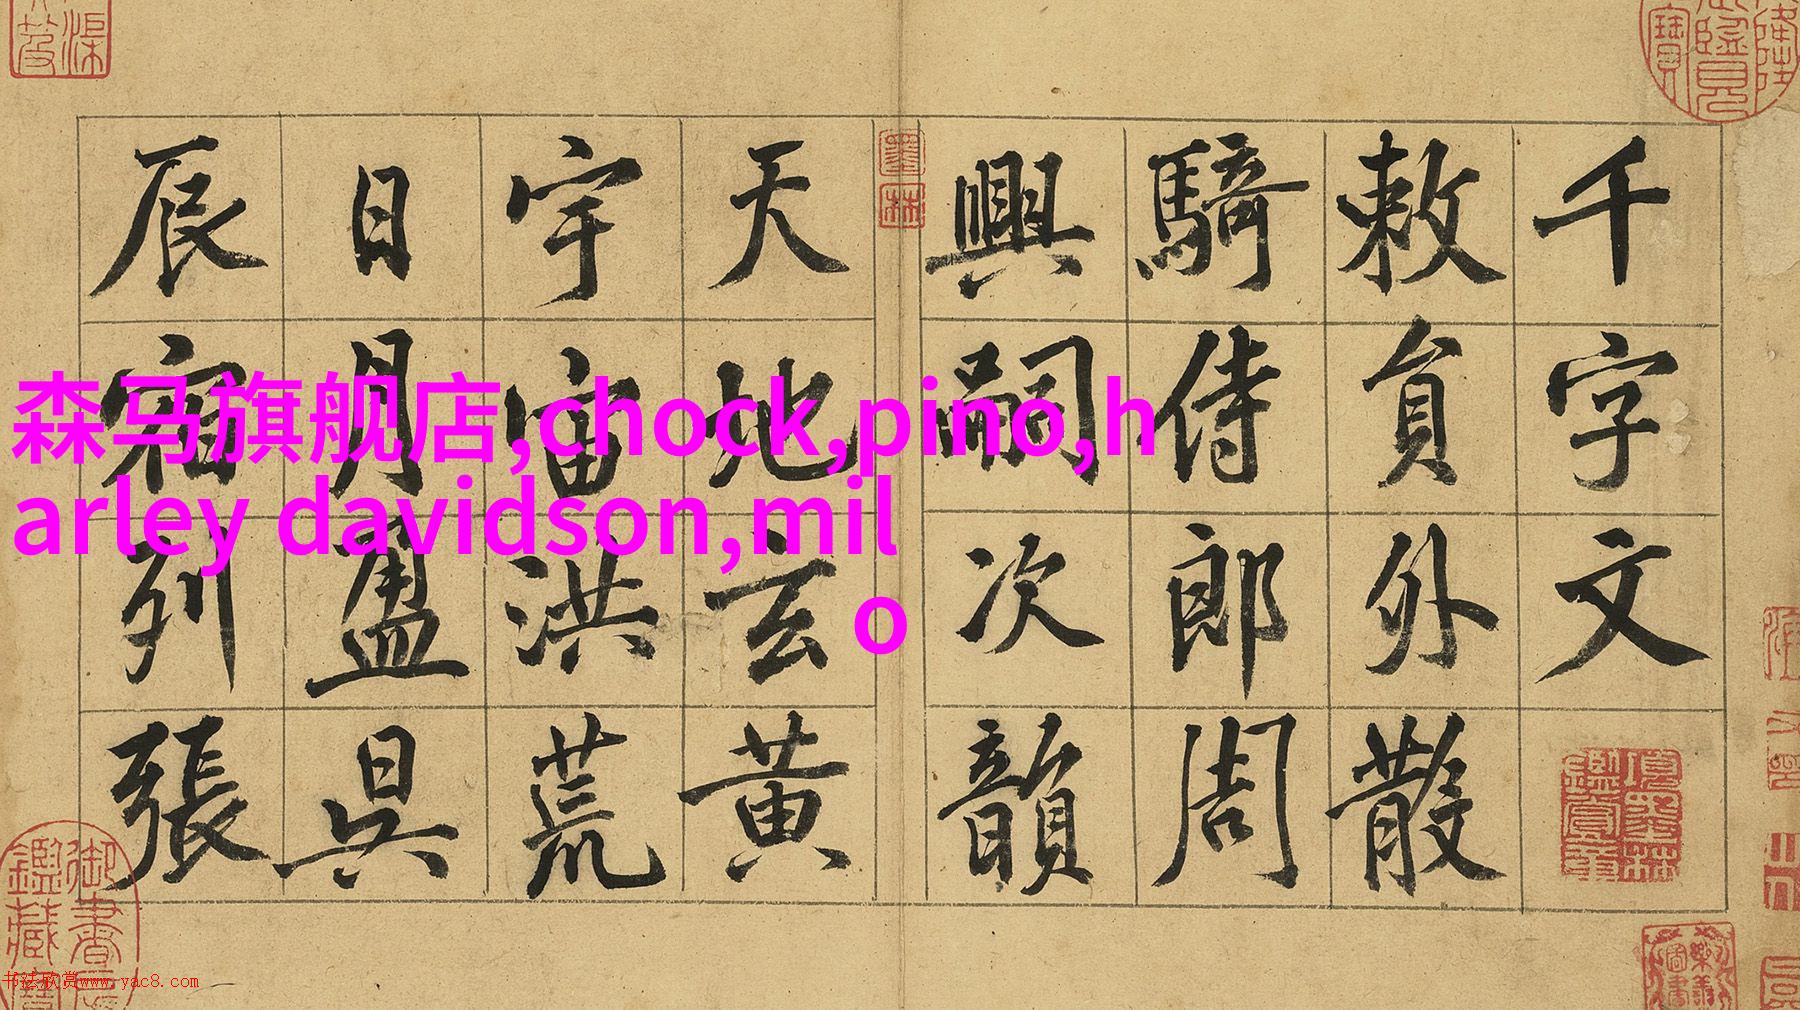 千字文
敕員外散
騎侍郎周
興嗣次韻
天地玄黄
宇宙洪荒
日月盈昃
辰宿列張
森马旗舰店,chock,pino,h
arley davidson,mil
o
墨林
項墨林鑑賞章
书法欣赏www.yac8.com